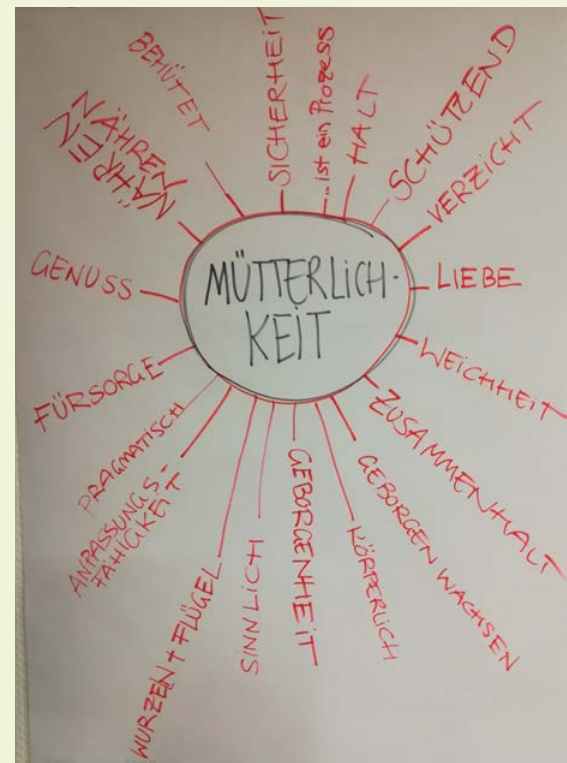 MÜTTERLICH-
KEIT
SICHERHEIT
..ist ein Prozess
HALT
SCHÜTZEND
VERZICHT
LIEBE
WEICHHEIT
ZUSAMMENHALT
GEBORGEN WACHSEN
KÖRPERLICH
GEBORGENHEIT
SINNLICH
WURZEN + FLÜGEL
ANPASSUNGS-
FÄHIGKEIT
PRAGMATISCH
FÜRSORGE
GENUSS
NÄHREN
NÄHREN
BEHÜTET